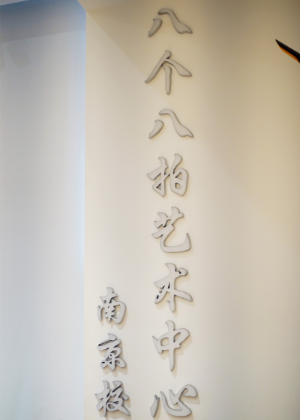 八个八拍艺术中心
南京校